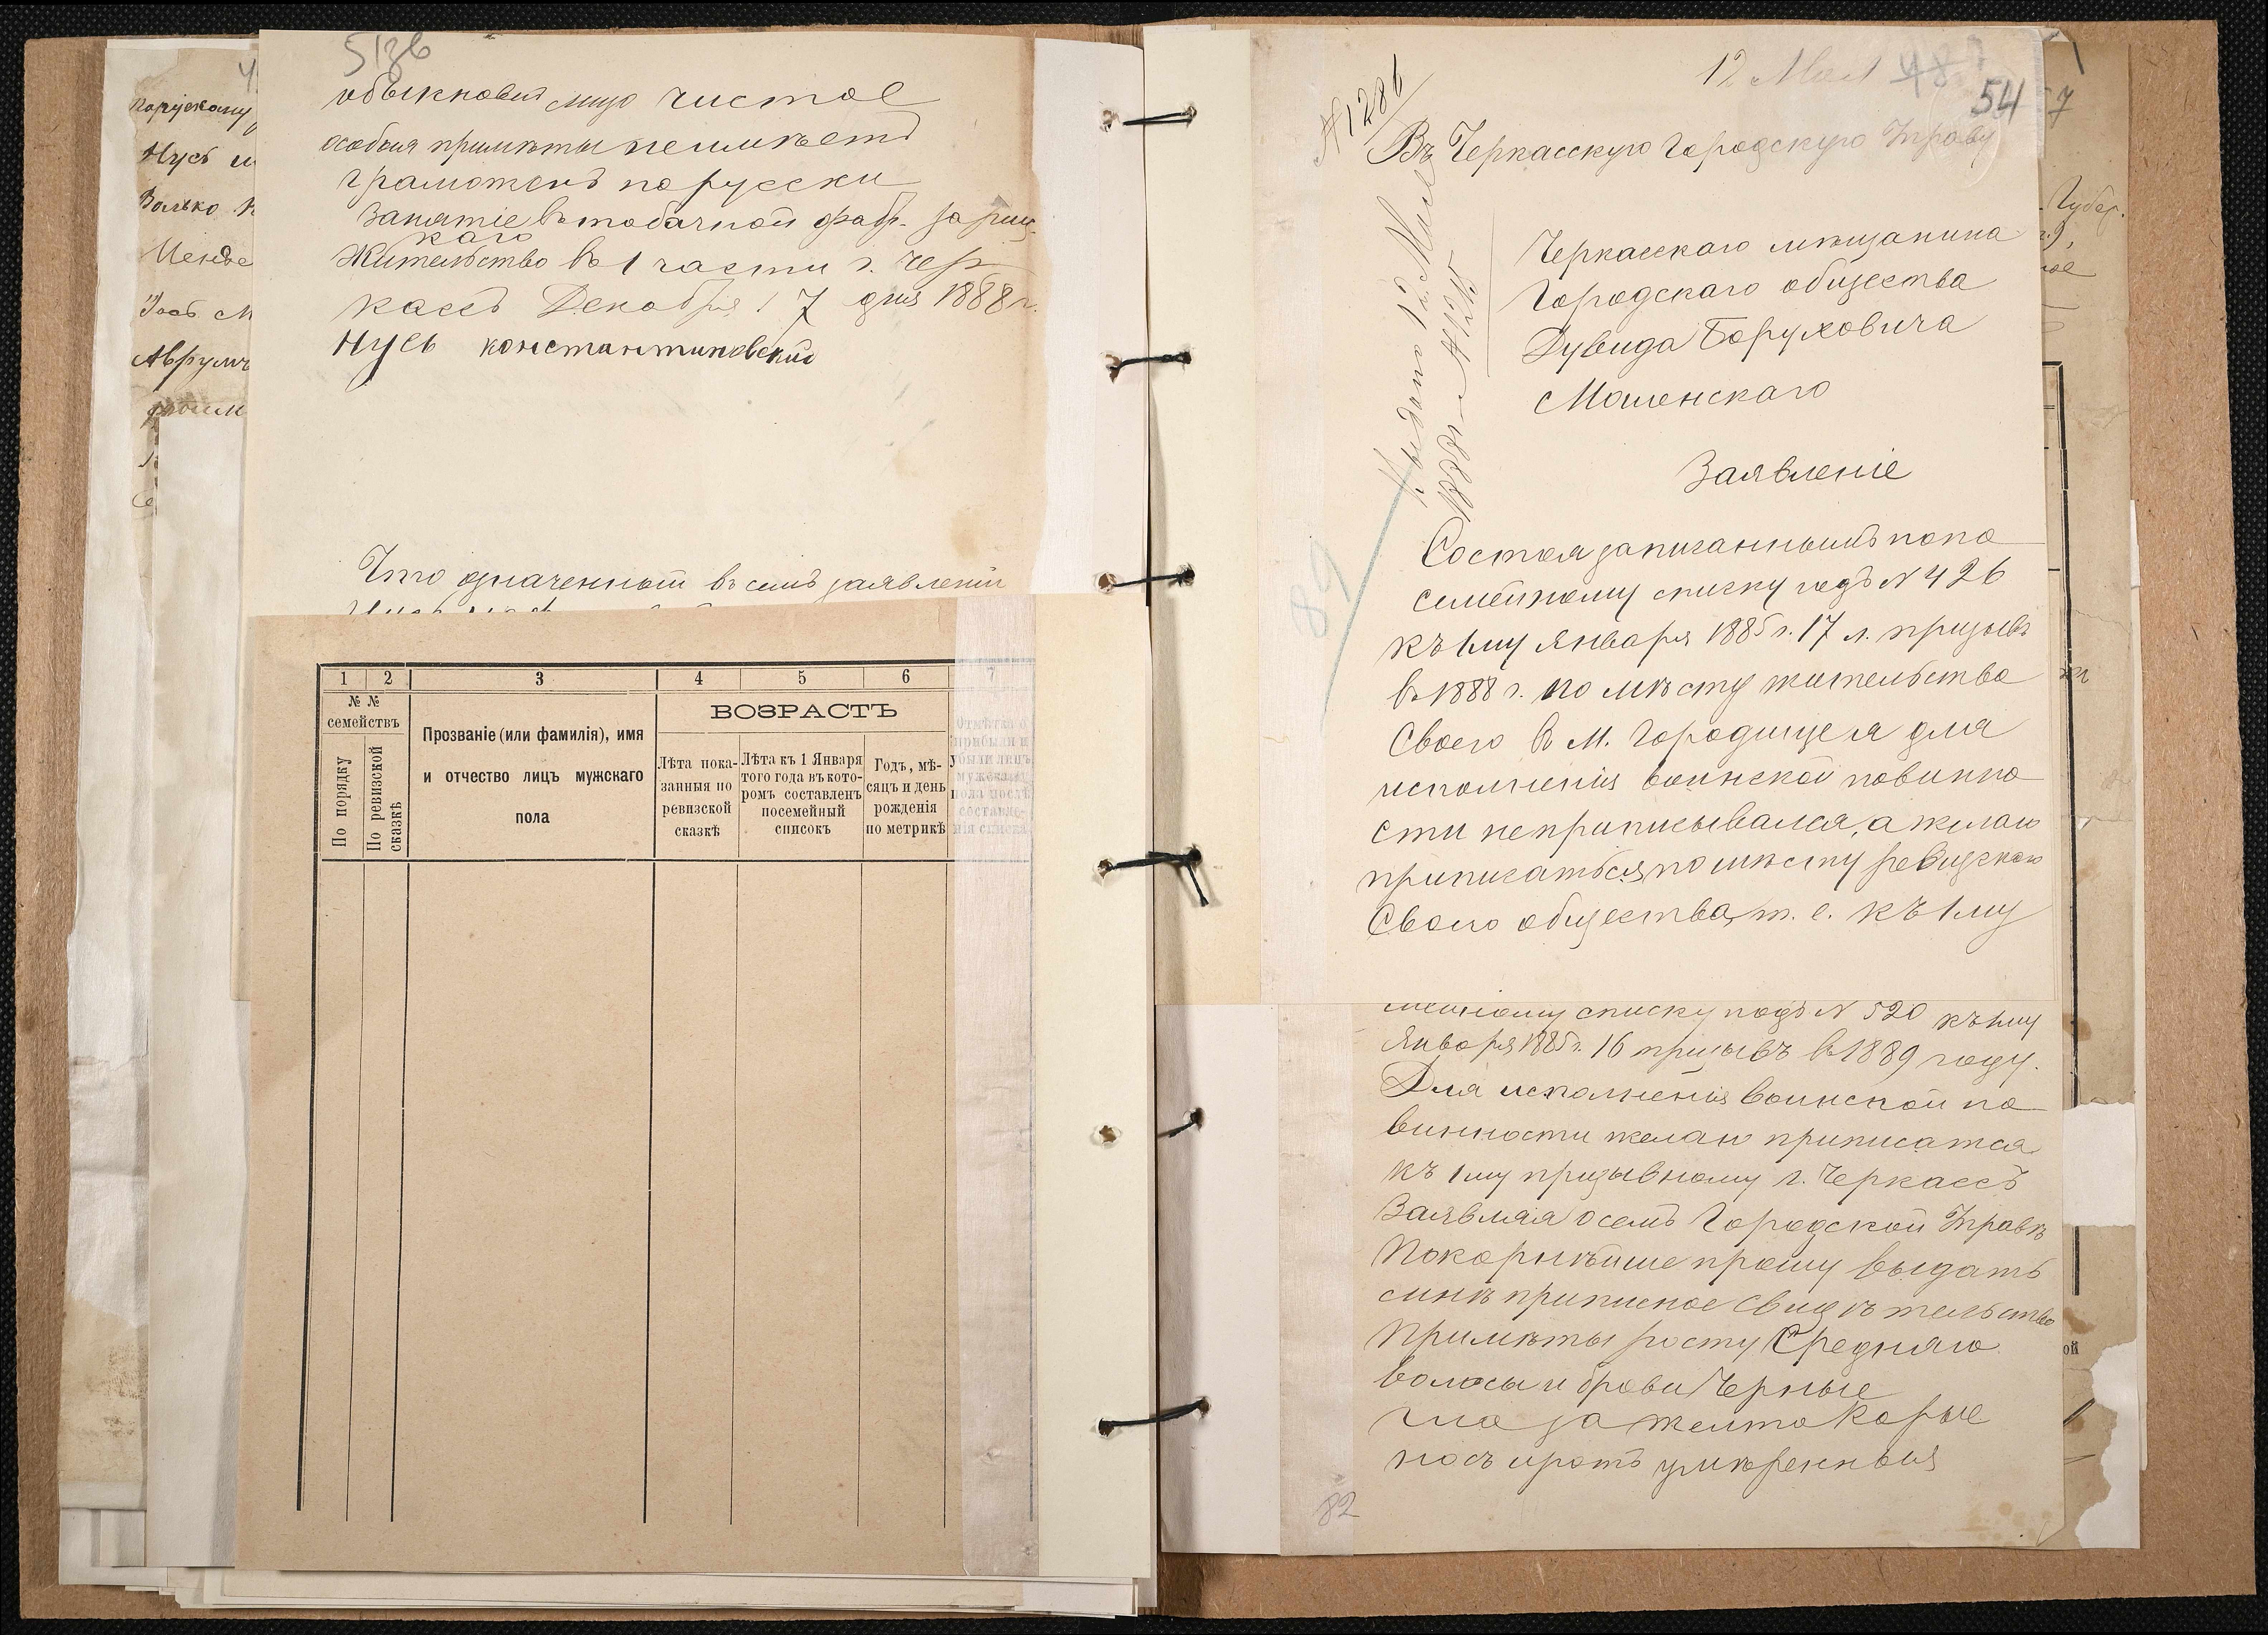 51зв
обыкновен лицо чистое
особыя примѣты неимѣетъ
грамотенъ порусски
Занятіе втобачной фабр. Зариц
каго
Жительство в 1 части г. Чер
кассъ Декабря 17 дня 1888 г.
Нусь константиновский
Что означенный въ семъ заявлении
Порускому
Нусь
Волько
Менде
Аврумъ
1 2 3 4 5 6 7
№ №
семействъ
По порядку
По ревизской сказкѣ
Прозваніе (или фамилія), имя
и отчество лицъ мужскаго
пола
ВОЗРАСТЪ
Лѣта пока-
занныя по
ревизской
сказкѣ
Лѣта къ 1 Января
того года въ кото-
ромъ составленъ
посемейный
списокъ
Годъ, мѣ-
сяцъ и день
рожденія
по метрикѣ
Отмѣтка о
прибыли и
убыли лицъ
мужскаго
пола послѣ
составле-
нія списка
12 Мая 48
54
7
№1286
Въ Черкасскую Городскую Управу
Черкасскаго мещанина
Городскаго общества
Дувида Боруховича
Мошенскаго
Заявленіе
Состоя записаннымъ попо
семейному списку подъ N 426
къ 1му января 1885 г. 17 л. призывъ
в 1888 г. по мѣсту жительства
Своего в М. Городище я для
исполненія воинской повинно
сти неприписывался, а желаю
приписаться по мѣсту ревизскаго
Своего общества, т. е. къ 1му
89
мейному списку подъ N 520 къ 1му
Января 1885 г. 16 призывъ в 1889 году.
Для исполненія воинской по
винности желаю приписатся
къ 1му призывному г. Черкассъ
Заявляя осемъ Городской Управѣ
Покорнѣйше прошу выдать
мнѣ приписное свидѣтельство
Примѣты росту Средняго
волосы и брови Черные
гла за желто Карые
носъ иротъ умѣренныя
82
Губер.
ой